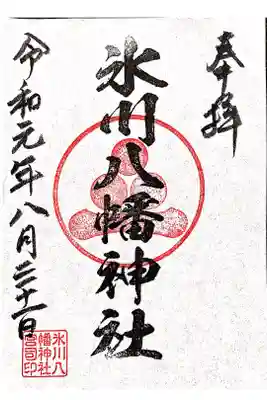 奉拝
氷川八幡神社
令和元年八月三十一日
氷川八
幡神社
宮司印